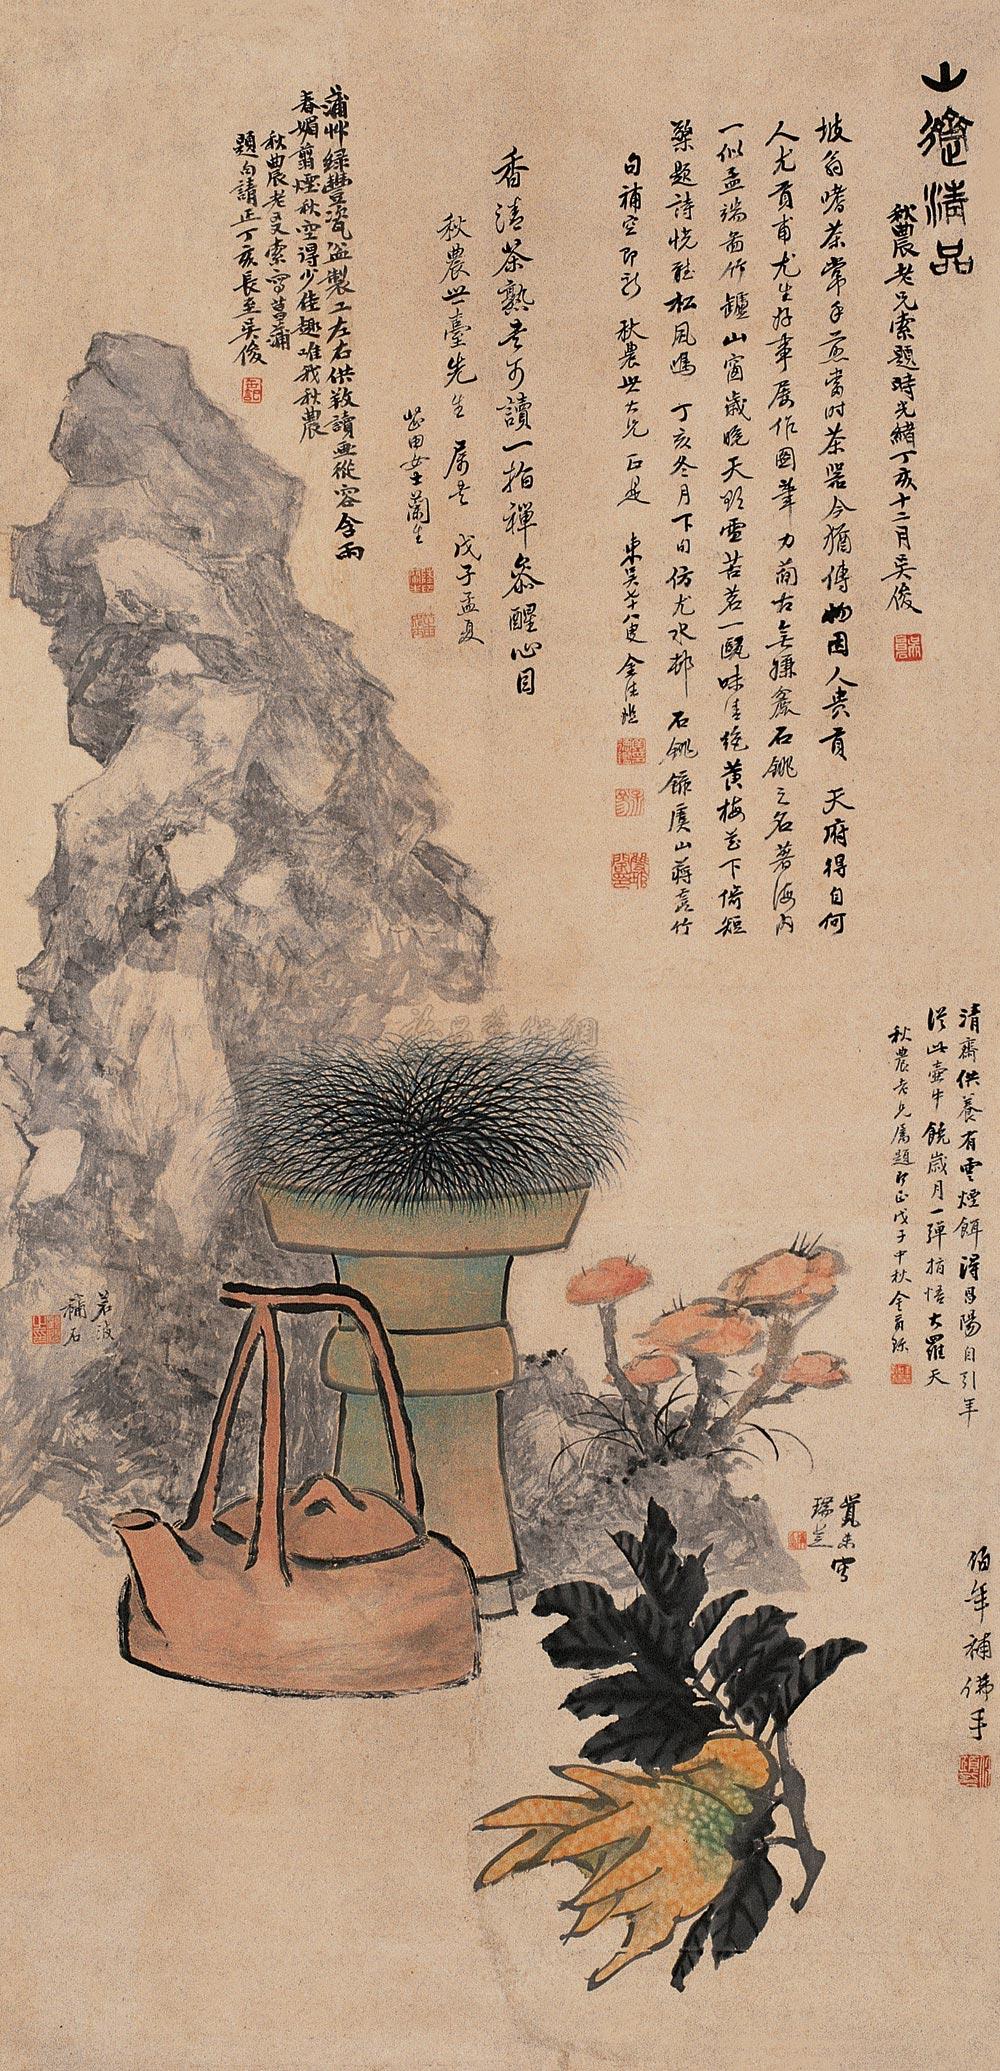 山斋清品
秋農老兄索題時光緒丁亥十二月吴俊
坡翁嗜茶常手煎當时茶器今猶傳物因人貴貢天府得自何
人尤貢甫尤生好事屡作圖筆力蕭古無嫌麤石銚之名著海内
一似孟端畫竹罏山窗歲晚天欲雪苦茗一甌味清絶黄梅花下倚短
築題詩恍聽松風鳴 丁亥冬月下旬仿尤水邨石銚錄虞山蔣
句補空即祈 秋農世大兄正是 東吴七十八叟金
香清茶熟畫可讀一指禅參醒心目
秋農世臺先生属畫 戊子孟夏
女士蘭生
蒲艸緑豐瓷盆製工左右供敦讀畫從容含雨
春媚翦煙秋空得少佳趣唯我秋農
秋農老友索寫菖蒲
題句請正丁亥長至吴俊
清齋供養有雲煙餌得昌陽自引年
從此壷中饒歲月一彈指悟大羅天
秋農老兄属題即正戊子中秋金
若波
補石
覺未寫
瑞芝
伯年補佛手